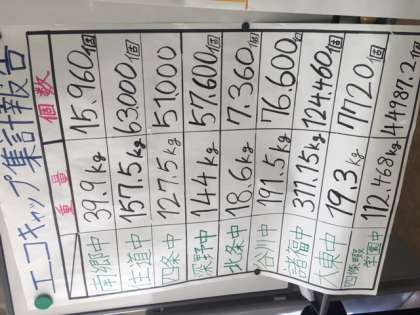 エコキャップ集計報告
重量 個数
南郷中 39.9kg 15.960個
住道中 157.5kg 63.000個
四条中 127.5kg 51.000
深野中 144kg 57.600個
北条中 18.6kg 7.360個
谷川中 191.5kg 76.600個
諸福中 311.15kg 124.460個
大東中 19.3kg 7720個
四條畷学園中 112.468kg 44987.2個